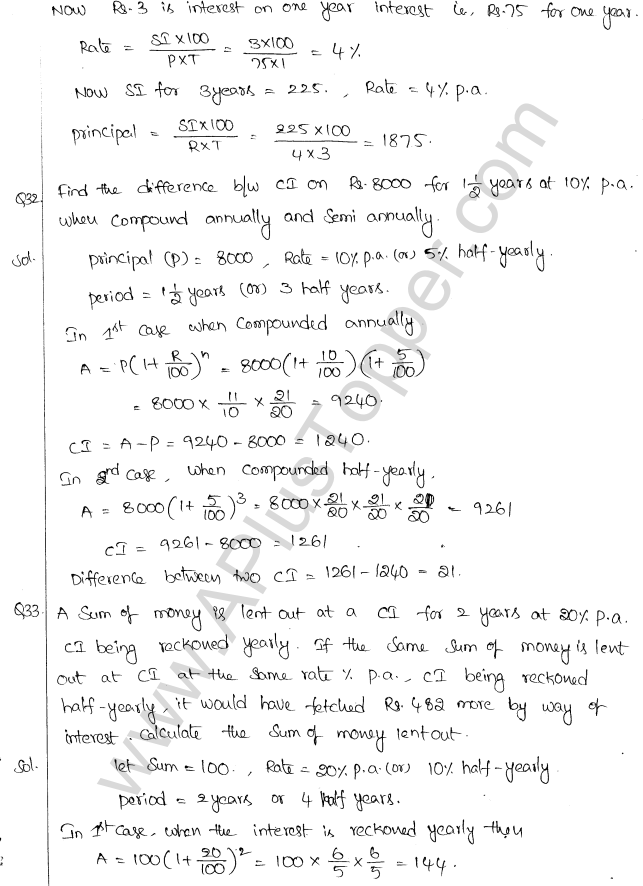 Now Rs.3 is interest on one year interest ie, Rs.75 for one year.
Rate = SI×100 / P×T = 3×100 / 75×1 = 4%
Now SI for 3years = 225. , Rate = 4% p.a.
principal = SI×100 / R×T = 225×100 / 4×3 = 1875.
Q32. find the difference b/w CI on Rs.8000 for 1 1/2 years at 10% p.a.
when compound annually and Semi annually.
Sol. principal (p) = 8000 , Rate = 10% p.a. (or) 5% half-yearly.
period = 1 1/2 years (or) 3 half years.
In 1st case when compounded annually
A = P(1+ R/100)^n = 8000(1+ 10/100)(1+ 5/100)
= 8000 × 11/10 × 21/20 = 9240.
CI = A-P = 9240-8000 = 1240.
In 2nd case, when compounded half-yearly,
A = 8000(1+ 5/100)^3 = 8000 × 21/20 × 21/20 × 21/20 = 9261
CI = 9261-8000 = 1261
Difference between two CI = 1261-1240 = 21.
Q33. A Sum of money is lent out at a CI for 2 years at 20% p.a.
CI being reckoned yearly. If the same sum of money is lent
out at CI at the same rate % p.a., CI being reckoned
half-yearly, it would have fetched Rs.482 more by way of
interest. Calculate the Sum of money lent out.
Sol. let Sum = 100. , Rate = 20% p.a. (or) 10% half-yearly
period = 2years or 4 half years.
In 1st case, when the interest is reckoned yearly then
A = 100(1+ 20/100)^2 = 100 × 6/5 × 6/5 = 144.
www.APlusTopper.com